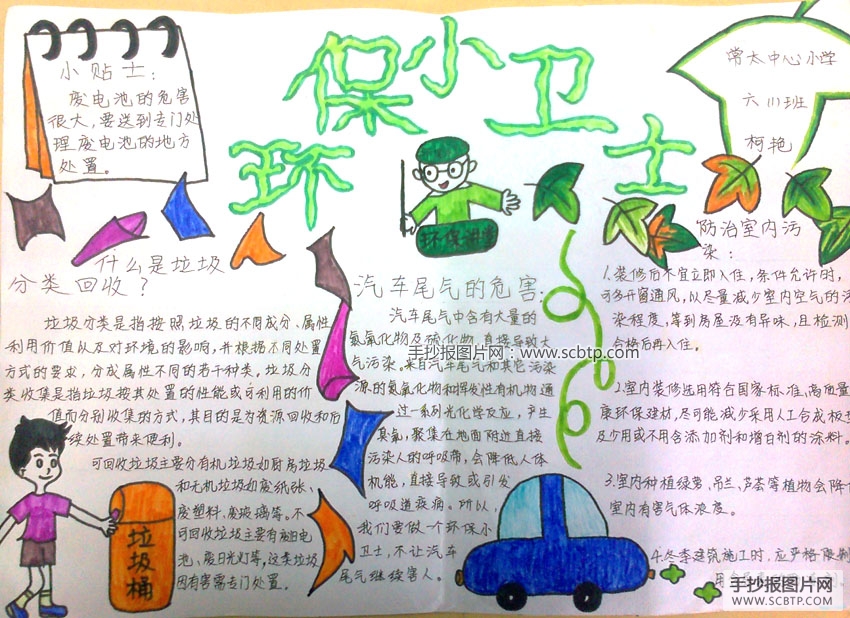 环保小卫士
小贴士：
废电池的危害
很大，要送到专门处
理废电池的地方
处置。
常太中心小学
六(1)班
柯艳
环保讲堂
什么是垃圾
分类回收？
垃圾分类是指按照垃圾的不同成分、属性
利用价值以及对环境的影响，并根据不同处置
方式的要求，分成属性不同的若干种类，垃圾分
类收集是指垃圾按其处置的性能或可利用的价
值而分别收集的方式，其目的为资源回收和后
续处置带来便利。
可回收垃圾主要分有机垃圾如厨房垃圾
和无机垃圾如废纸张、
废塑料、废玻璃等。不
可回收垃圾主要有废旧电
池、废日光灯等，这类垃圾
因有害需专门处置。
垃圾桶
汽车尾气的危害：
汽车尾气中含有大量的
氮氧化物及碳化物，直接导致大
气污染。来自汽车尾气和其它污染
源的氮氧化物和挥发性有机物通
过一系列光化学反应，产生
臭氧，聚集在地面附近直接
污染人的呼吸带，会降低人体
机能，直接导致或引发
呼吸道疾病。所以，
我们要做一个环保小
卫士，不让汽车
尾气继续害人。
手抄报图片网：www.scbtp.com
防治室内污
染：
1.装修后不宜立即入住，条件允许时，
可多开窗通风，以尽量减少室内空气的污
染程度，等到房屋没有异味，且检测
合格后再入住。
2.室内装修选用符合国家标准、高质量
康环保建材，尽可能减少采用人工合成板
及少用或不用含添加剂和增白剂的涂料。
3.室内种植绿萝、吊兰、芦荟等植物会降
室内有害气体浓度。
4.冬季建筑施工时，应严格限制
用
手抄报图片网
WWW.SCBTP.COM